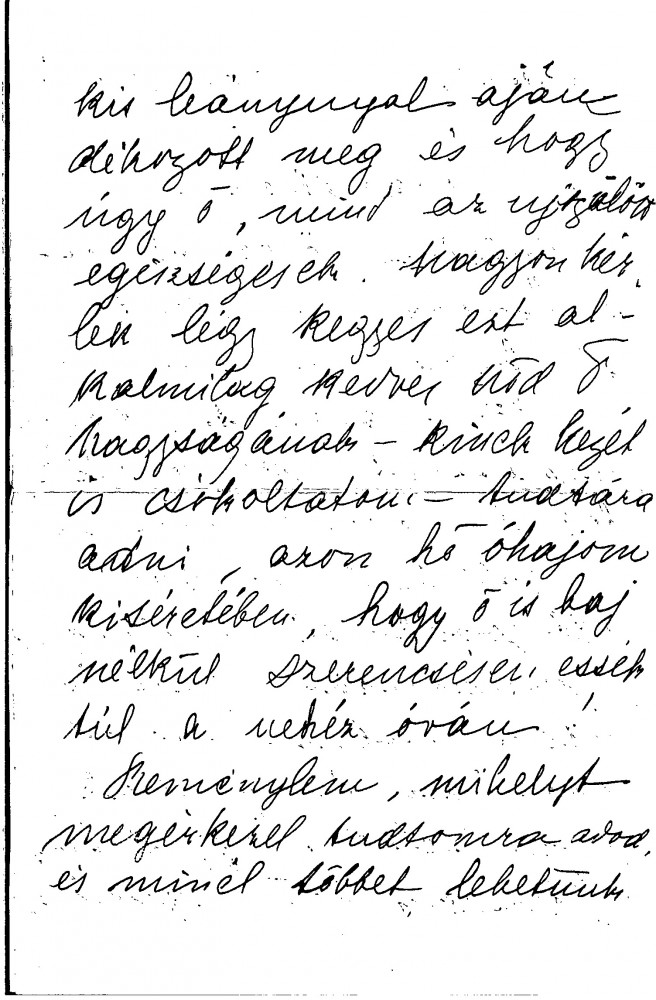 kis leánynyal aján
dékozott meg és hogy
úgy ő, mind az újszülött
egészségesek. Nagyon kér
lek légy kegyes ezt al-
kalmilag kedves nőd Ő
nagyságának – kinek kezét
is csókoltatom – tudtára
adni, azon hő óhajom
kiséretében, hogy ő is baj
nélkül szerencsésen essék
túl a nehéz órán!
Reménylem, mihelyt
megérkezel tudtomra adod,
és minél többet lehetünk